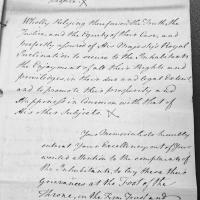 Wholly relying therefore on the Truth, the
Justice, and the Equity of their Cause, and
perfectly assured of His Majesty's Royal
Inclination to secure to the Inhabitants
the Enjoyment of all their Rights and
priviledges, in their due and legal Extent
and to promote their prosperity and
Happiness in Common with that of
His other Subjects. X
Your Memorialists humbly
entreat Your Excellency out of Your
wonted attention to the complaints of
the Inhabitants, to lay these their
Grievances at the Foot of the
Throne, in the Firm Trust and